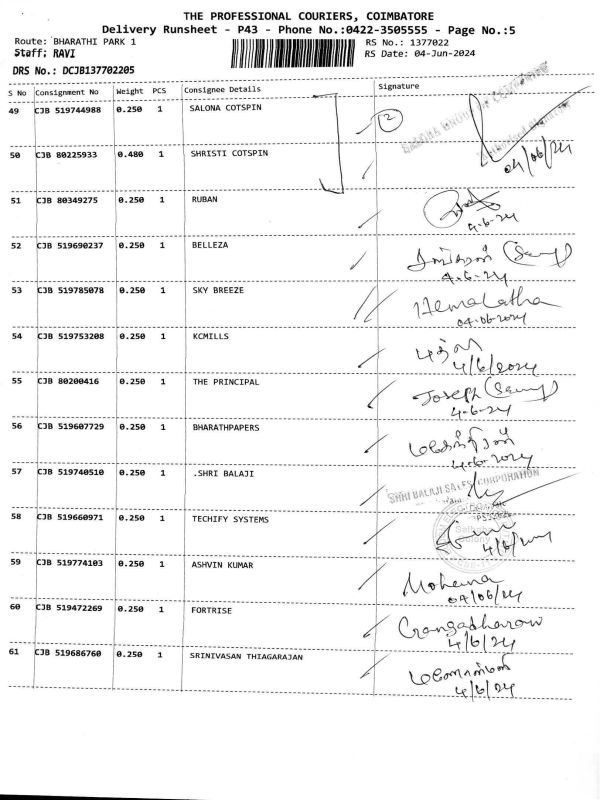 THE PROFESSIONAL COURIERS, COIMBATORE
Delivery Runsheet - P43 - Phone No.:0422-3505555 - Page No.:5
Route: BHARATHI PARK 1 RS No.: 1377022
Staff: RAVI RS Date: 04-Jun-2024
DRS No.: DCJB137702205
S No Consignment No Weight PCS Consignee Details Signature
49 CJB 519744988 0.250 1 SALONA COTSPIN 2
04/06/24
50 CJB 80225933 0.480 1 SHRISTI COTSPIN
51 CJB 80349275 0.250 1 RUBAN
4-6-24
52 CJB 519690237 0.250 1 BELLEZA
4-6-24
53 CJB 519785078 0.250 1 SKY BREEZE Hemalatha
04-06-2024
54 CJB 519753208 0.250 1 KCMILLS
4/6/2024
55 CJB 80200416 0.250 1 THE PRINCIPAL Joseph
4-6-24
56 CJB 519607729 0.250 1 BHARATHPAPERS
4-6-2024
57 CJB 519740510 0.250 1 .SHRI BALAJI SHRI BALAJI SALES CORPORATION
58 CJB 519660971 0.250 1 TECHIFY SYSTEMS
4/6/2024
59 CJB 519774103 0.250 1 ASHVIN KUMAR Mohana
04/06/24
60 CJB 519472269 0.250 1 FORTRISE
4/6/24
61 CJB 519686760 0.250 1 SRINIVASAN THIAGARAJAN
4/6/24